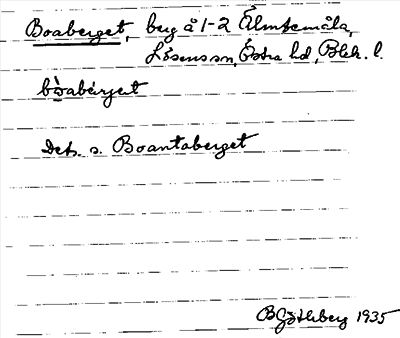 Boaberget, berg å 1-2 Älmtamåla,
Lösens sn, Östra hd, Blek. l.
bòabérjet
Dets. s. Boantaberget
B Götlberg 1935